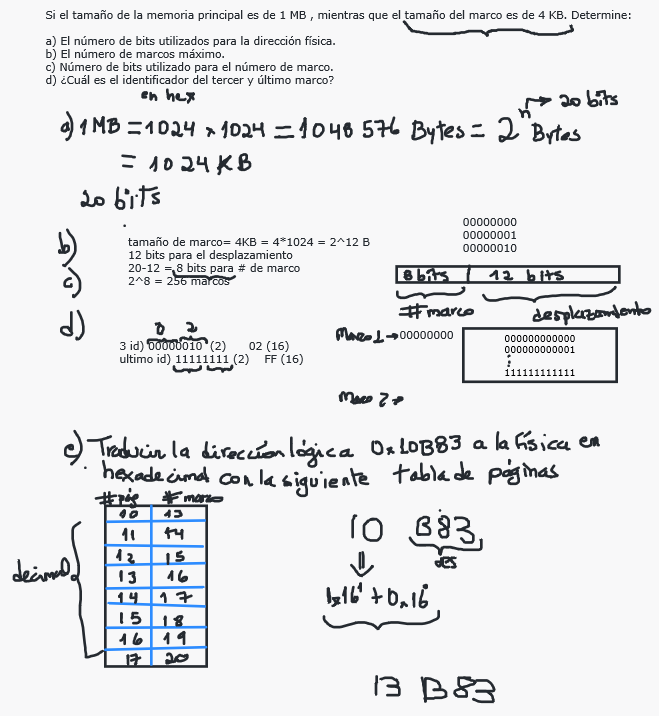 Si el tamaño de la memoria principal es de 1 MB , mientras que el tamaño del marco es de 4 KB. Determine:
a) El número de bits utilizados para la dirección física.
b) El número de marcos máximo.
c) Número de bits utilizado para el número de marco.
d) ¿Cuál es el identificador del tercer y último marco?
en hex
a) 1 MB = 1024 × 1024 = 1048 576 Bytes = 2^n Bytes → 20 bits
= 1024 KB
20 bits
b) tamaño de marco= 4KB = 4*1024 = 2^12 B
12 bits para el desplazamiento
20-12 = 8 bits para # de marco
c) 2^8 = 256 marcos
00000000
00000001
00000010
8 bits 12 bits
# marco desplazamiento
d) 0 2
3 id) 00000010 (2) 02 (16)
ultimo id) 11111111 (2) FF (16)
Marco 1 → 00000000
000000000000
000000000001
111111111111
Marco 2 →
e) Traducir la dirección lógica 0x10B83 a la física en
hexadecimal con la siguiente tabla de páginas
# pág # marco
10 13
11 14
12 15
13 16
14 17
15 18
16 19
17 20
decimal
10 B83
des
1×16^1 + 0×16^0
13 B83